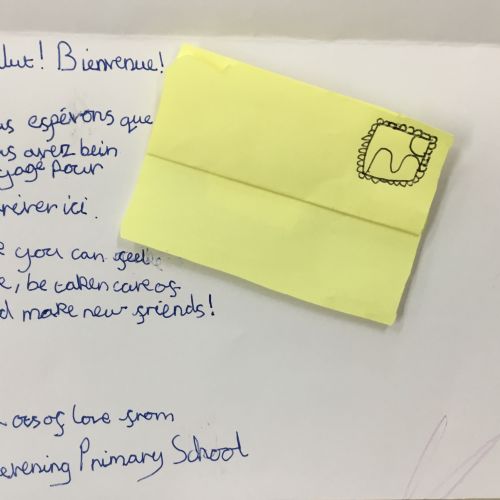 lut! Bienvenue!
us espérons que
us avez bein
yagé pour
river ici.
e you can feel
e, be taken care of
d make new friends!
ots of love from
erening Primary School